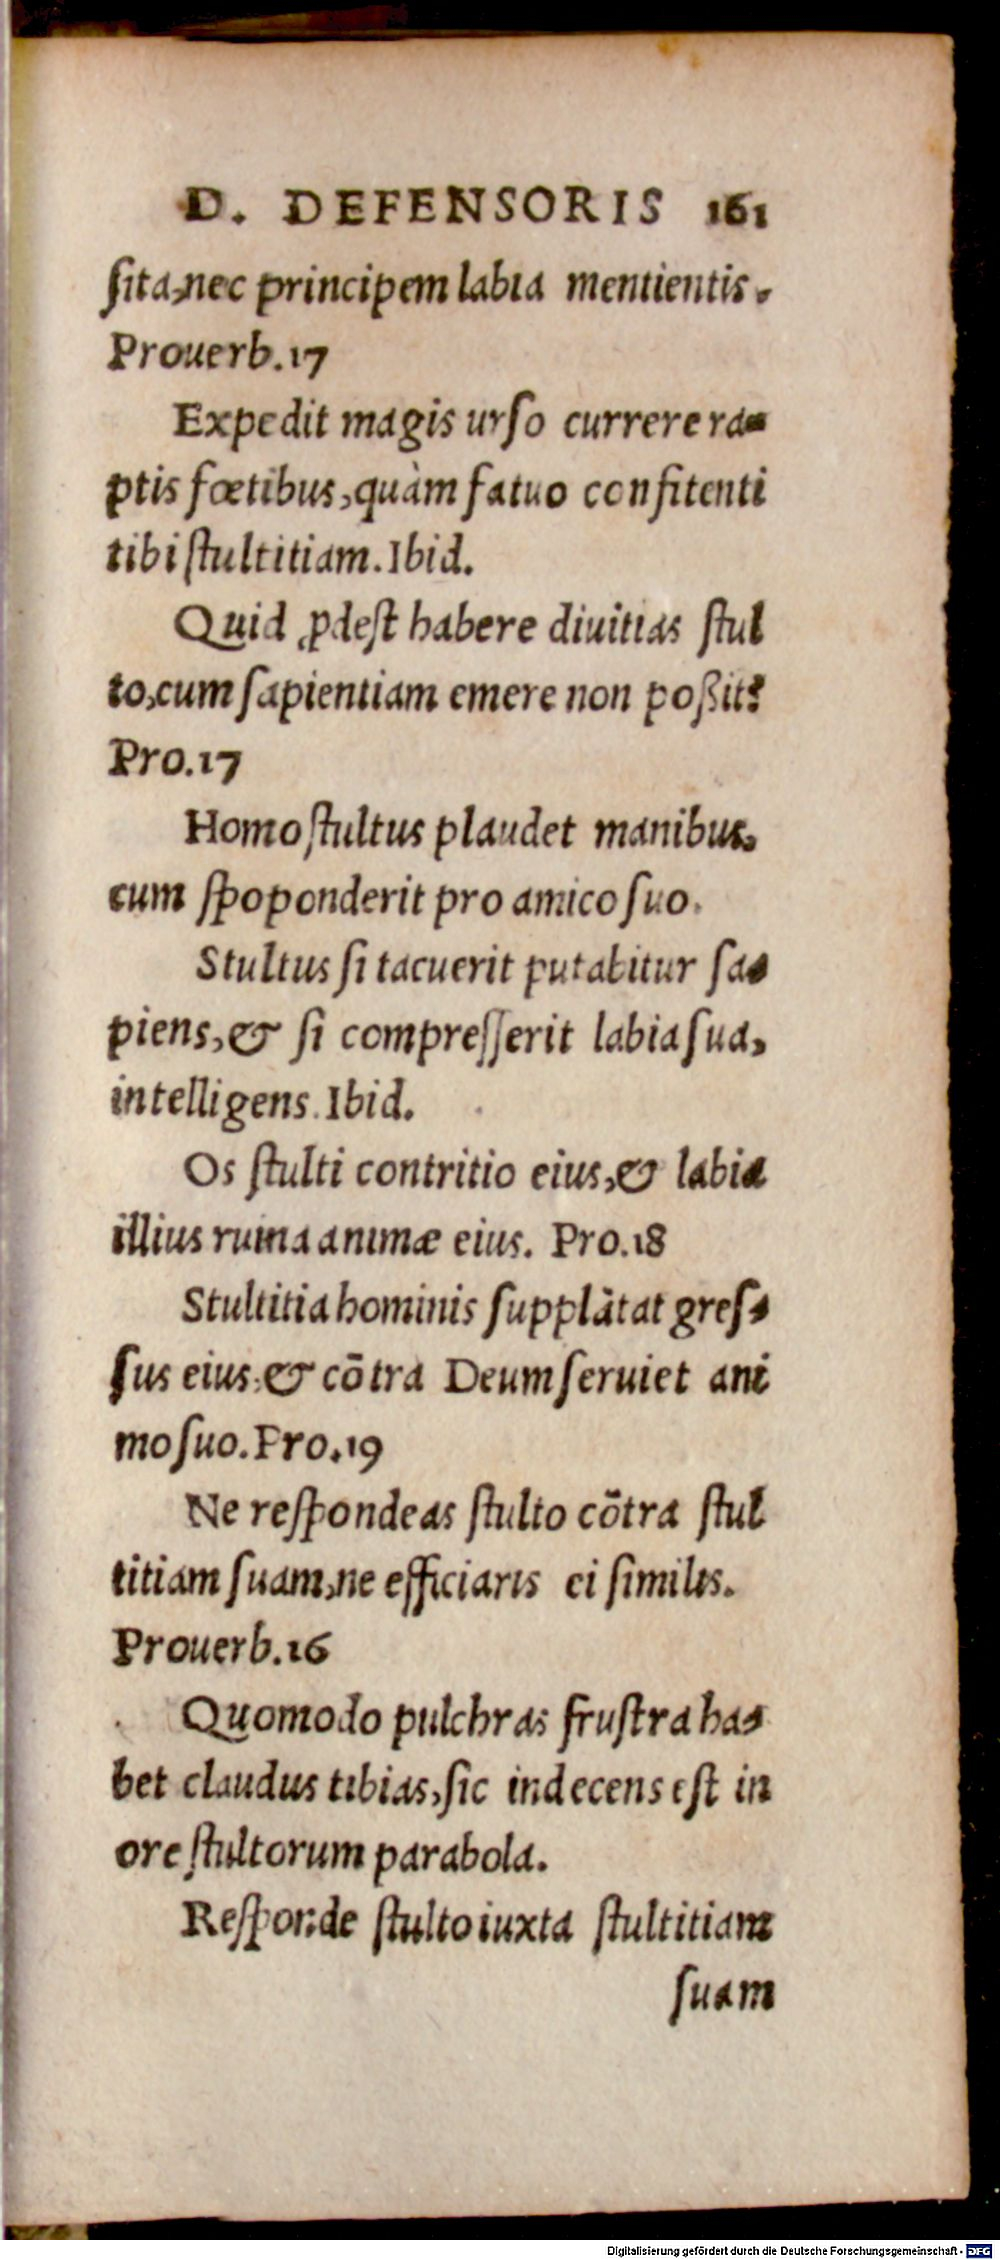 D. DEFENSORIS 161
ſita,nec principem labia mentientis.
Prouerb.17
Expedit magis urſo currere ra-
ptis fœtibus,quàm fatuo confitenti
tibi ſtultitiam.Ibid.
Quid ꝓdeſt habere diuitias ſtul
to,cum ſapientiam emere non poßit?
Pro.17
Homo ſtultus plaudet manibus,
cum ſpoponderit pro amico ſuo.
Stultus ſi tacuerit putabitur ſa-
piens,& ſi compreſſerit labia ſua,
intelligens.Ibid.
Os ſtulti contritio eius,& labia
illius ruina animæ eius. Pro.18
Stultitia hominis ſupplātat greſ-
ſus eius:& cōtra Deum ſeruiet ani
mo ſuo.Pro.19
Ne reſpondeas ſtulto cōtra ſtul
titiam ſuam,ne efficiaris ei ſimilis.
Prouerb.16
Quomodo pulchras fruſtra ha-
bet claudus tibias,ſic indecens eſt in
ore ſtultorum parabola.
Reſponde ſtulto iuxta ſtultitiam
ſuam
Digitalisierung gefördert durch die Deutsche Forschungsgemeinschaft - DFG